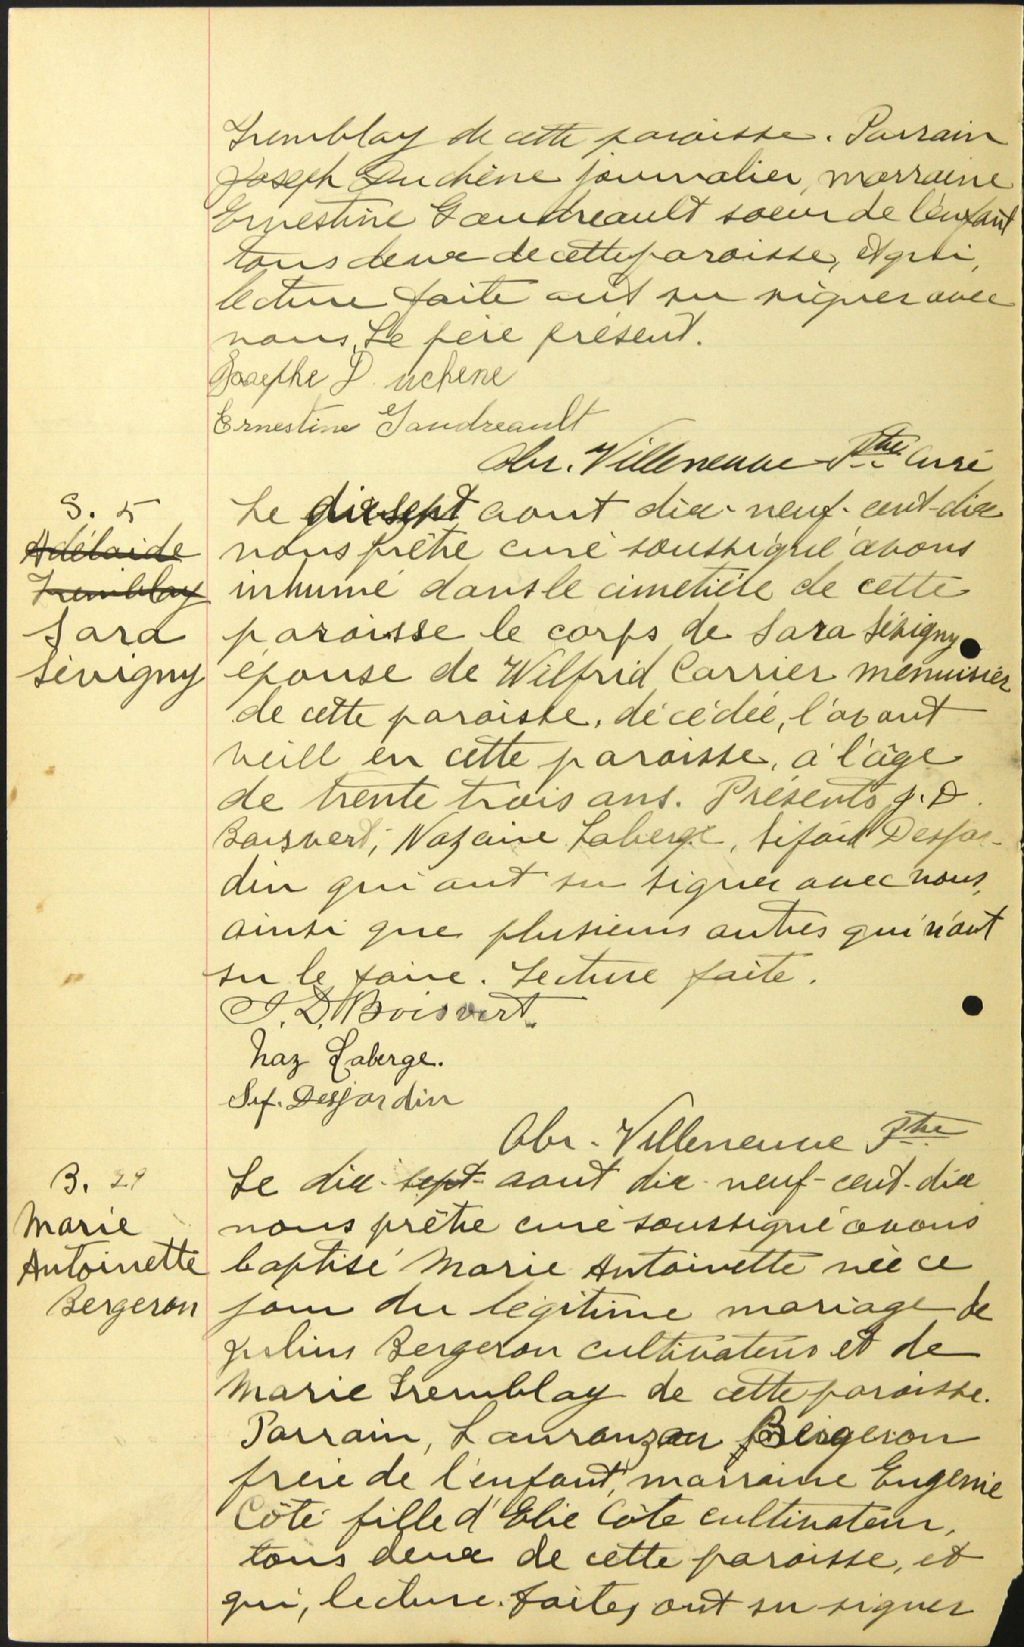 Tremblay de cette paroisse. Parrain
Joseph Duchène journalier, marraine
Ernestine Gaudreault soeur de l'enfant
tous deux de cette paroisse, et qui,
lecture faite ont su signer avec
nous. Le père présent.
Josephe Duchene
Ernestine Gaudreault
Abr. Villeneuve Ptre Curé
S. 5
Adélaide
Tremblay
Sara
Sévigny
Le dix sept aout dix-neuf-cent-dix
nous prêtre curé soussigné avons
inhumé dans le cimetière de cette
paroisse le corps de Sara Sévigny
épouse de Wilfrid Carrier menuisier
de cette paroisse, décédée, l'avant
veill en cette paroisse, à l'âge
de trente trois ans. Présents J. D.
Boisvert, Nazaire Laberge, Sifroid Desjar-
din qui ont su signer avec nous,
ainsi que plusieurs autres qui n'ont
su le faire. Lecture faite.
J. D. Boisvert.
Naz Laberge.
Sif. Desjardin
Abr. Villeneuve Ptre
B. 29
Marie
Antoinette
Bergeron
Le dix-sept-aout dix-neuf-cent-dix
nous prêtre curé soussigné avons
baptisé Marie Antoinette née ce
jour du légitime mariage de
Julius Bergeron cultivateur et de
Marie Tremblay de cette paroisse.
Parrain, Bergeron
frère de l'enfant, marraine Eugenie
Côté fille d'Elie Côté cultivateur,
tous deux de cette paroisse, et
qui, lecture faite, ont su signer